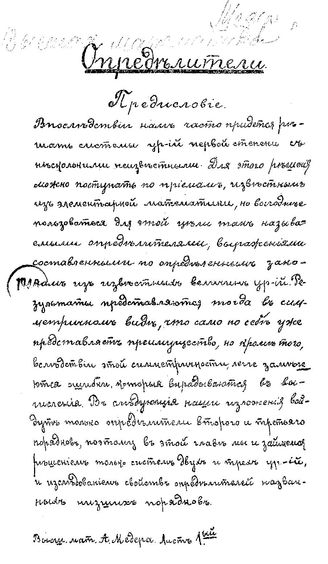 Медер
Высшая математика
Опредѣлители.
Предисловіе.
Впослѣдствіи намъ часто придется рѣ-
шать системы ур-ій первой степени съ
нѣсколькими неизвѣстными. Для этого рѣшенія
можно поступать по пріемамъ, извѣстнымъ
изъ элементарной математики, но выгоднѣе
пользоваться для этой цѣли такъ называ-
емыми опредѣлителями, выраженіями
составленными по опредѣленнымъ зако-
намъ изъ извѣстныхъ величинъ ур-ій. Ре-
зультаты представляются тогда въ сим-
метричномъ видѣ, что само по себѣ уже
представляетъ преимущество, но кромѣ того,
вслѣдствіи этой симметричности, легче замѣча-
ются ошибки, которыя вкрадываются въ вы-
численія. Въ слѣдующія наши изложенія вой-
дутъ только опредѣлители второго и третьяго
порядковъ, поэтому въ этой главѣ мы и займемся
рѣшеніемъ только системъ двухъ и трехъ ур-ій,
и изслѣдованіемъ свойствъ опредѣлителей назван-
ныхъ низшихъ порядковъ.
Высш. мат. А. Медера. Листъ 1ый